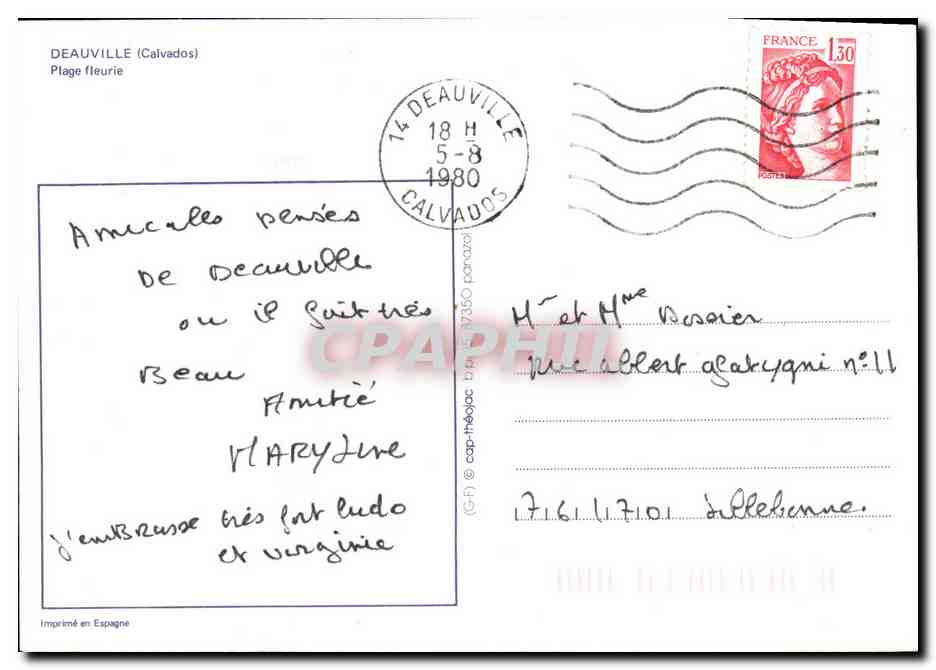 DEAUVILLE (Calvados)
Plage fleurie
FRANCE 1,30
POSTES
14 DEAUVILLE
18 H
5-8
1980
CALVADOS
Amicales pensées
De Deauville
ou il fait très
Beau
Amitié
MARYLine
j'embrasse très fort ludo
et virginie
(G-F) © cap-théojac 87350 panazol
CPAPHIL
Mr et Mme Dossier
rue albert glatygni n° 11
76170 Lillebonne.
Imprimé en Espagne